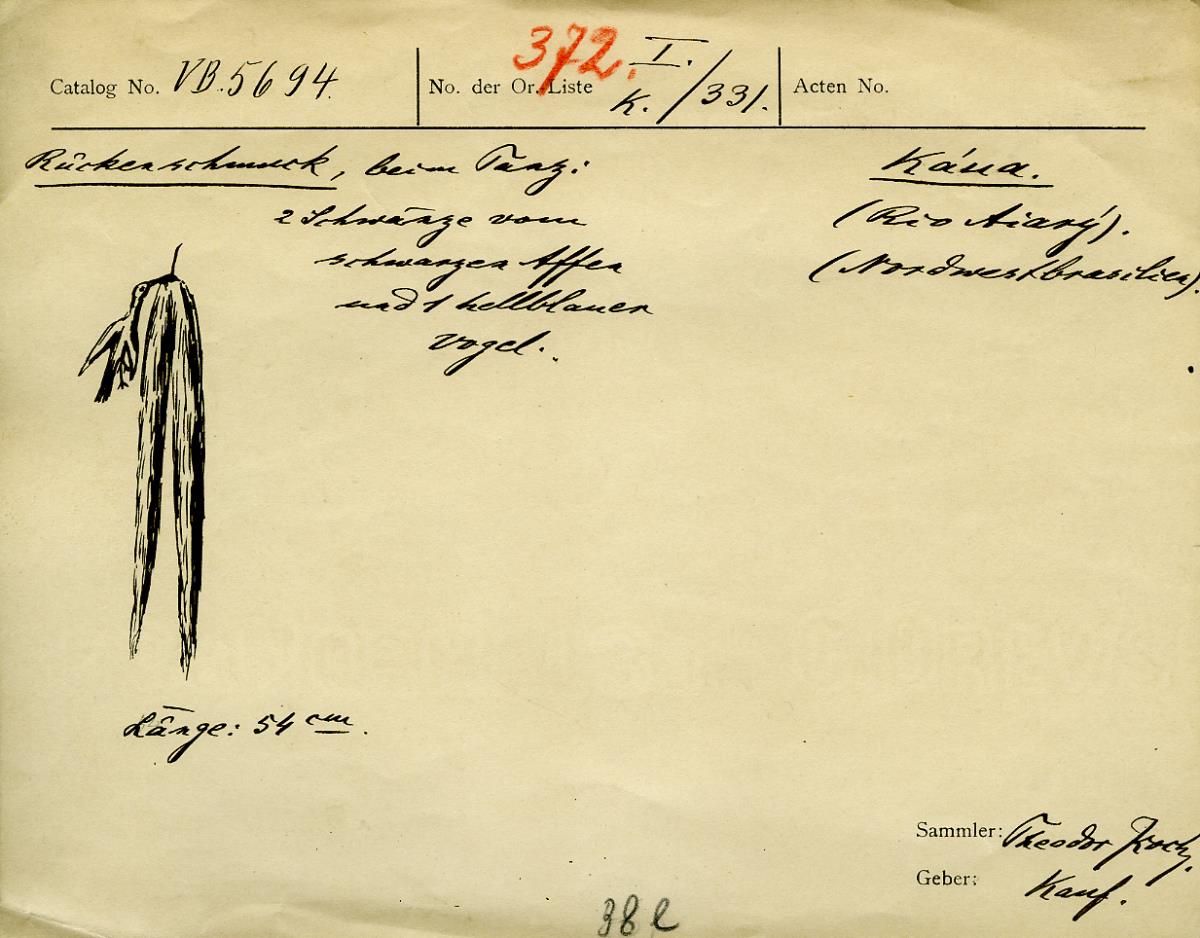 Catalog No. VB.5694.
No. der Or. Liste 372. I. K./331.
Acten No.
Rückenschmuck, beim Tanz:
2 Schwänze vom
schwarzen Affen
und 1 hellblauer
Vogel.
Káua.
(Rio Aiarý).
(Nordwestbrasilien).
Länge: 54 cm.
Sammler: Theodor Koch.
Geber: Kauf.
38